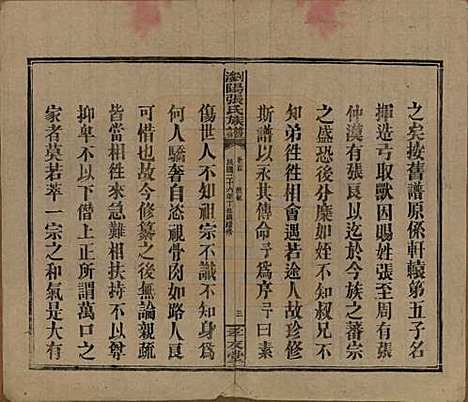 之矣按舊譜原係軒轅第五子名
揮造弓取獸因賜姓張至周有張
仲漢有張良以至於今族之蕃宗
之盛恐後分糜如姓不知叔兄不
知弟徃徃相視若途人故珍修
斯譜以永其傳命予為序予曰素
瀏陽張氏族譜
卷首
三
孝友堂
傷世人不識不知身為
何人驕奢自恣視骨肉如路人良
可惜也故今修纂之後無論親疏
皆當相徃來急難相扶持不以尊
抑卑不以下僭上正所謂萬口之
家者莫若萃一宗之和氣是大有